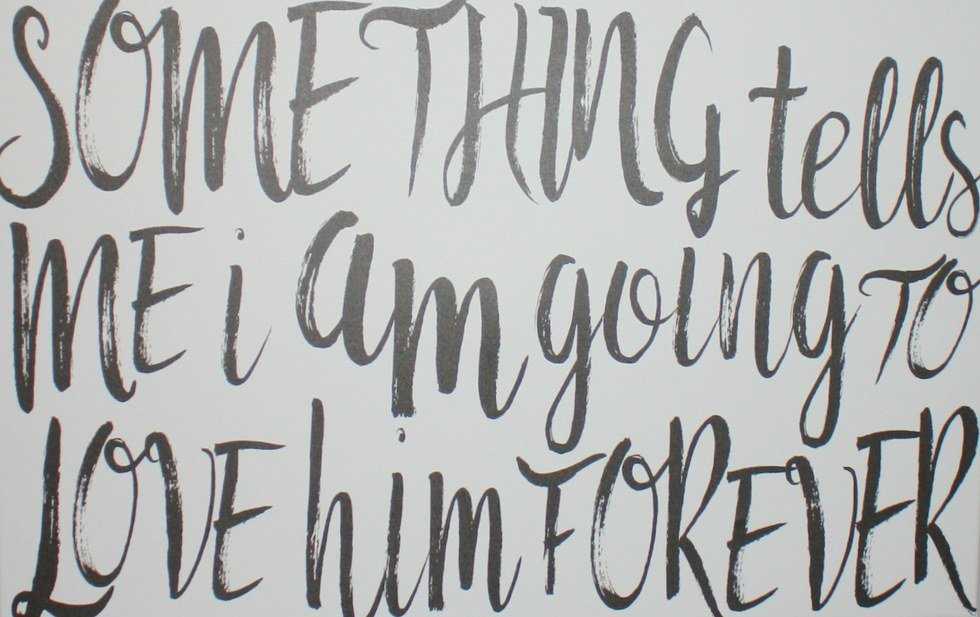 SOMETHING tells
ME i am going TO
LOVE him FOREVER